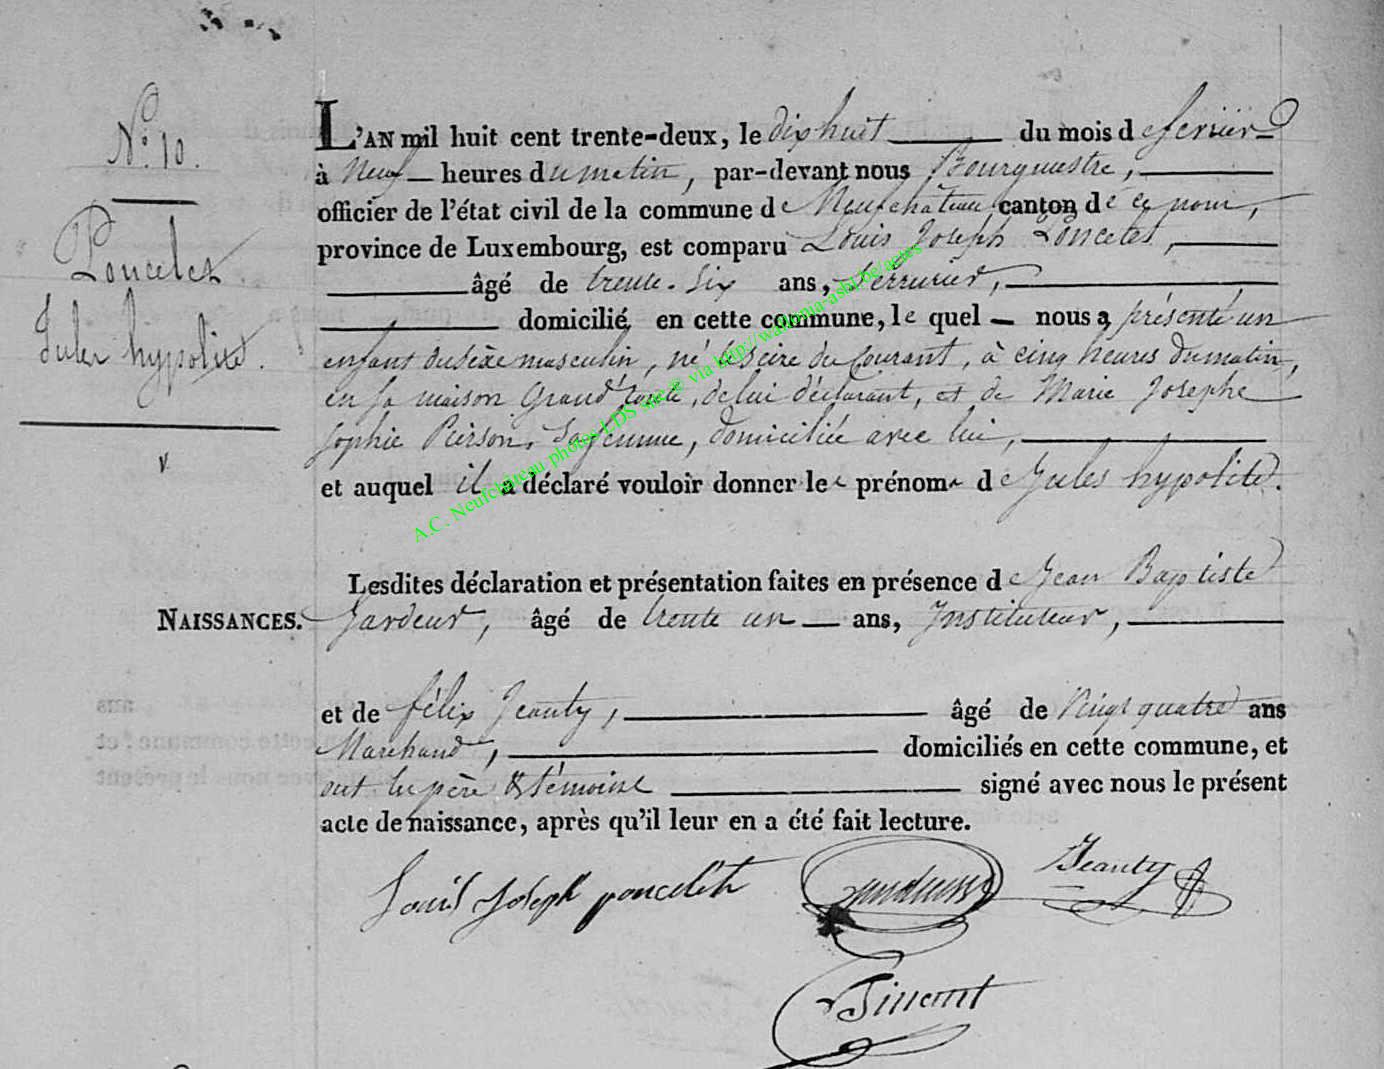 N.° 10.
Poncelet
Jules hypolite.
L'AN mil huit cent trente-deux, le dix huit du mois de ferrier
à Neuf heures du matin, par-devant nous Bourgmestre,
officier de l'état civil de la commune de Neufchâteau canton de ce nom,
province de Luxembourg, est comparu Louis Joseph Poncelet,
âgé de trente-six ans, Serrurier,
domicilié en cette commune, lequel nous a présenté un
enfant du sexe masculin, né le seize du Courant, à cinq heures du matin,
en sa maison Grand', de lui déclarant, et de Marie Josephe
Sophie Pierson, Sa femme, domiciliée avec lui,
et auquel il a déclaré vouloir donner les prénoms de Jules hypolite.
Lesdites déclaration et présentation faites en présence de Jean Baptiste
NAISSANCES.
Jardeur, âgé de trente un ans, Instituteur,
et de félix Jeanty, âgé de Vingt quatre ans
Marchand, domiciliés en cette commune, et
ont les père & témoins signé avec nous le présent
acte de naissance, après qu'il leur en a été fait lecture.
Louis Joseph poncelet
Jeanty
A.C. Neufchâteau photos LDS mises via http://wallonia-asbl.be/actes